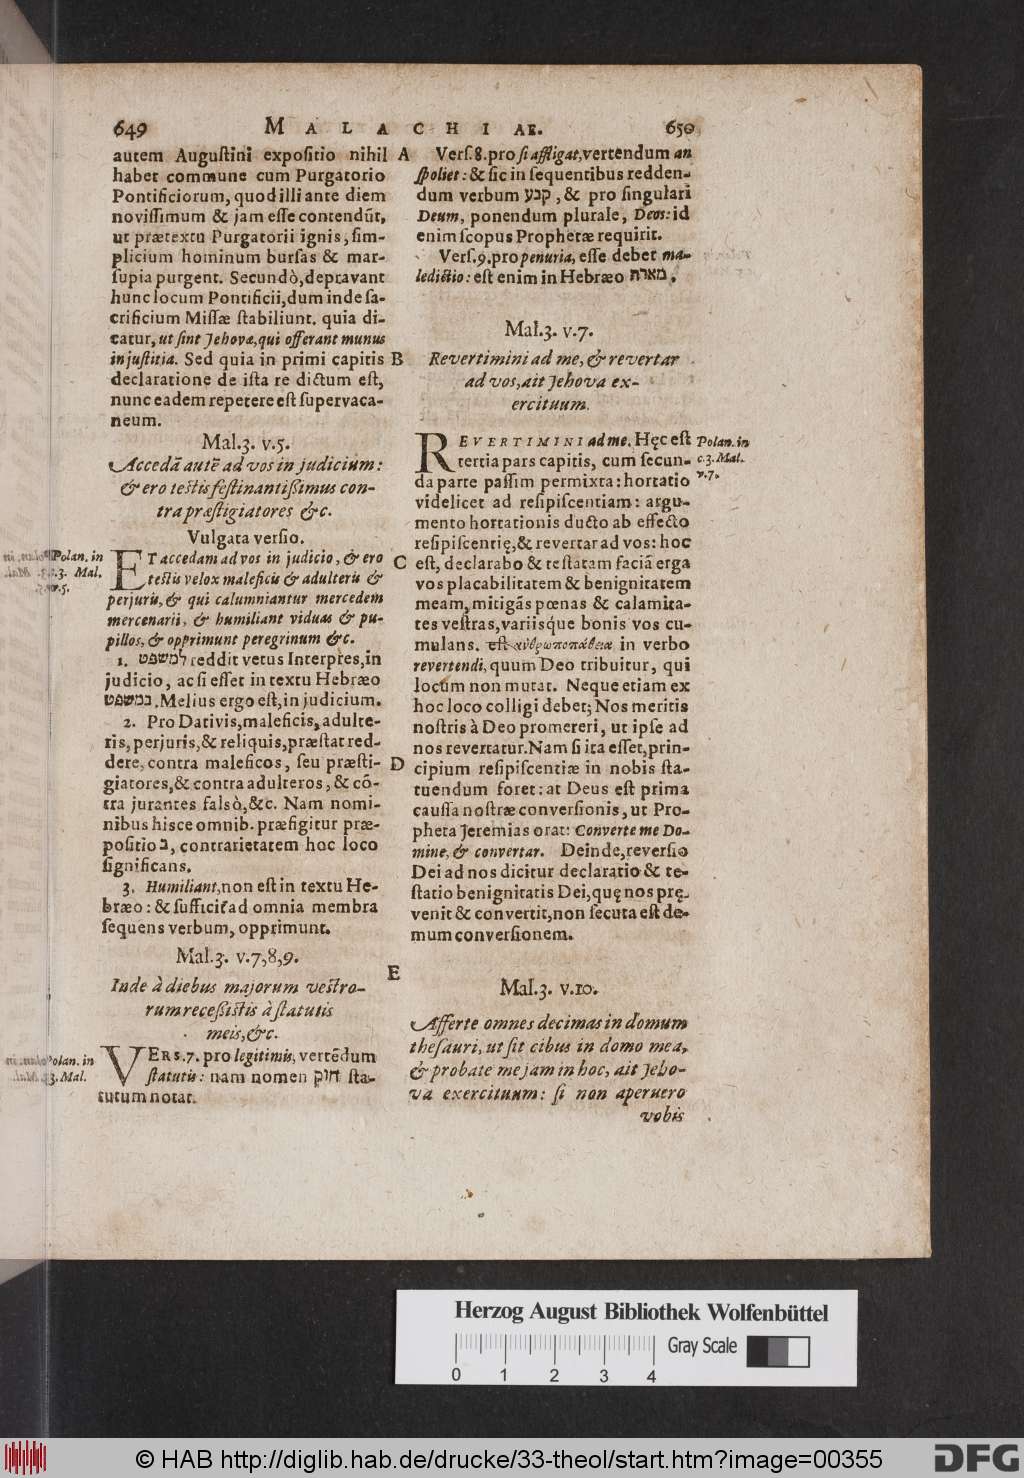 649 MALACHIAE. 650
autem Auguſtini expoſitio nihil
habet commune cum Purgatorio
Pontificiorum, quod illi ante diem
noviſſimum & jam eſſe contendūt,
ut prætextu Purgatorii ignis, ſim-
plicium hominum burſas & mar-
ſupia purgent. Secundò, depravant
hunc locum Pontificii, dum inde ſa-
crificium Miſſæ ſtabiliunt. quia di-
catur, ut ſint Jehovæ, qui offerant munus
in juſtitia. Sed quia in primi capitis
declaratione de iſta re dictum eſt,
nunc eadem repetere eſt ſupervaca-
neum.
Mal.3. v.5.
Accedā autē ad vos in judicium:
& ero teſtis feſtinantiſſimus con-
tra præſtigiatores &c.
Vulgata verſio.
Polan. in
c.3. Mal.
v.5.
ET accedam ad vos in judicio, & ero
teſtis velox maleficis & adulteris &
perjuris, & qui calumniantur mercedem
mercenarii, & humiliant viduas & pu-
pillos, & opprimunt peregrinum &c.
1. למשפט reddit vetus Interpres, in
judicio, ac ſi eſſet in textu Hebræo
במשפט. Melius ergo eſt, in judicium.
2. Pro Dativis, maleficis, adulte-
ris, perjuris, & reliquis, præſtat red-
dere, contra maleficos, ſeu præſti-
giatores, & contra adulteros, & cō-
tra jurantes falsò, &c. Nam nomi-
nibus hisce omnib. præfigitur præ-
poſitio ב, contrarietatem hoc loco
ſignificans.
3. Humiliant, non eſt in textu He-
bræo: & ſufficit ad omnia membra
ſequens verbum, opprimunt.
Mal.3. v.7,8,9.
Inde à diebus majorum veſtro-
rum receſſiſtis à ſtatutis
meis, &c.
Polan. in
3. Mal.
VERS. 7. pro legitimis, vertēdum
ſtatutis: nam nomen חוק ſta-
tutum notat.
A
B
C
D
E
Verſ. 8. pro ſi affligat, vertendum an
ſpoliet: & ſic in ſequentibus redden-
dum verbum קבע, & pro ſingulari
Deum, ponendum plurale, Deos: id
enim ſcopus Prophetæ requirit.
Verſ. 9. pro penuria, eſſe debet ma-
ledictio: eſt enim in Hebræo מארת.
Mal.3. v.7.
Revertimini ad me, & revertar
ad vos, ait Jehova ex-
ercituum.
REVERTIMINI ad me. Hęc eſt
tertia pars capitis, cum ſecun-
da parte paſſim permixta: hortatio
videlicet ad reſipiſcentiam: argu-
mento hortationis ducto ab effecto
reſipiſcentię, & revertar ad vos: hoc
eſt, declarabo & teſtatam faciā erga
vos placabilitatem & benignitatem
meam, mitigās pœnas & calamita-
tes veſtras, variisque bonis vos cu-
mulans. eſt ἀνθρωποπάθεια in verbo
revertendi, quum Deo tribuitur, qui
locum non mutat. Neque etiam ex
hoc loco colligi debet; Nos meritis
noſtris à Deo promereri, ut ipſe ad
nos revertatur. Nam ſi ita eſſet, prin-
cipium reſipiſcentiæ in nobis ſta-
tuendum foret: at Deus eſt prima
cauſſa noſtræ converſionis, ut Pro-
pheta Jeremias orat: Converte me Do-
mine, & convertar. Deinde, reverſio
Dei ad nos dicitur declaratio & te-
ſtatio benignitatis Dei, quę nos prę-
venit & convertit, non ſecuta eſt de-
mum converſionem.
Polan. in
c.3. Mal.
v.7.
Mal.3. v.10.
Afferte omnes decimas in domum
theſauri, ut ſit cibus in domo mea,
& probate me jam in hoc, ait Jeho-
va exercituum: ſi non aperuero
vobis
Herzog August Bibliothek Wolfenbüttel
Gray Scale
0 1 2 3 4
© HAB http://diglib.hab.de/drucke/33-theol/start.htm?image=00355
DFG